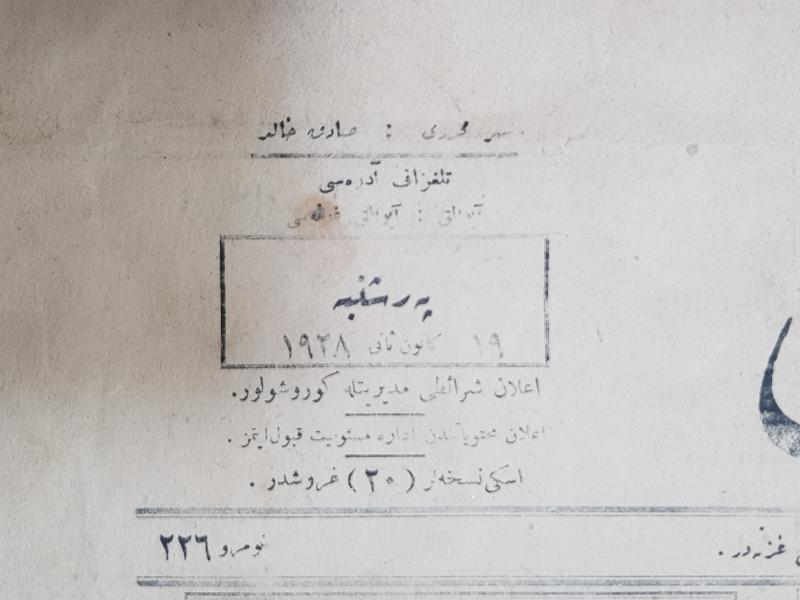 سر محرری : صادق خالد
تلغراف آدره‌سی
آیوالق : آیوالق غزته‌سی
پەرشنبه
١٩ كانون ثانی ١٩٢٨
اعلان شرائطی مدیریتله كوروشولور.
اعلان محتویاتندن اداره مسئولیت قبول ایتمز .
اسكی نسخه‌لر (٢٠) غروشدر .
غزته‌در .
نومرو ٢٢٦